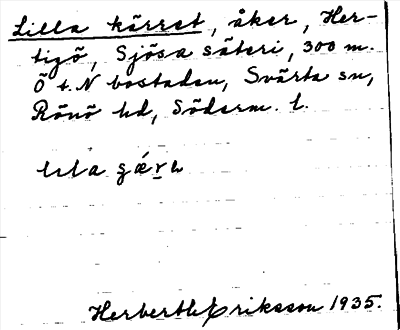 Lilla kärret, åker, Her-
tigö, Sjösa säteri, 300 m.
Ö t. N bostaden, Svärta sn,
Rönö hd, Söderm. l.
lɩla
Herbert Eriksson 1935.